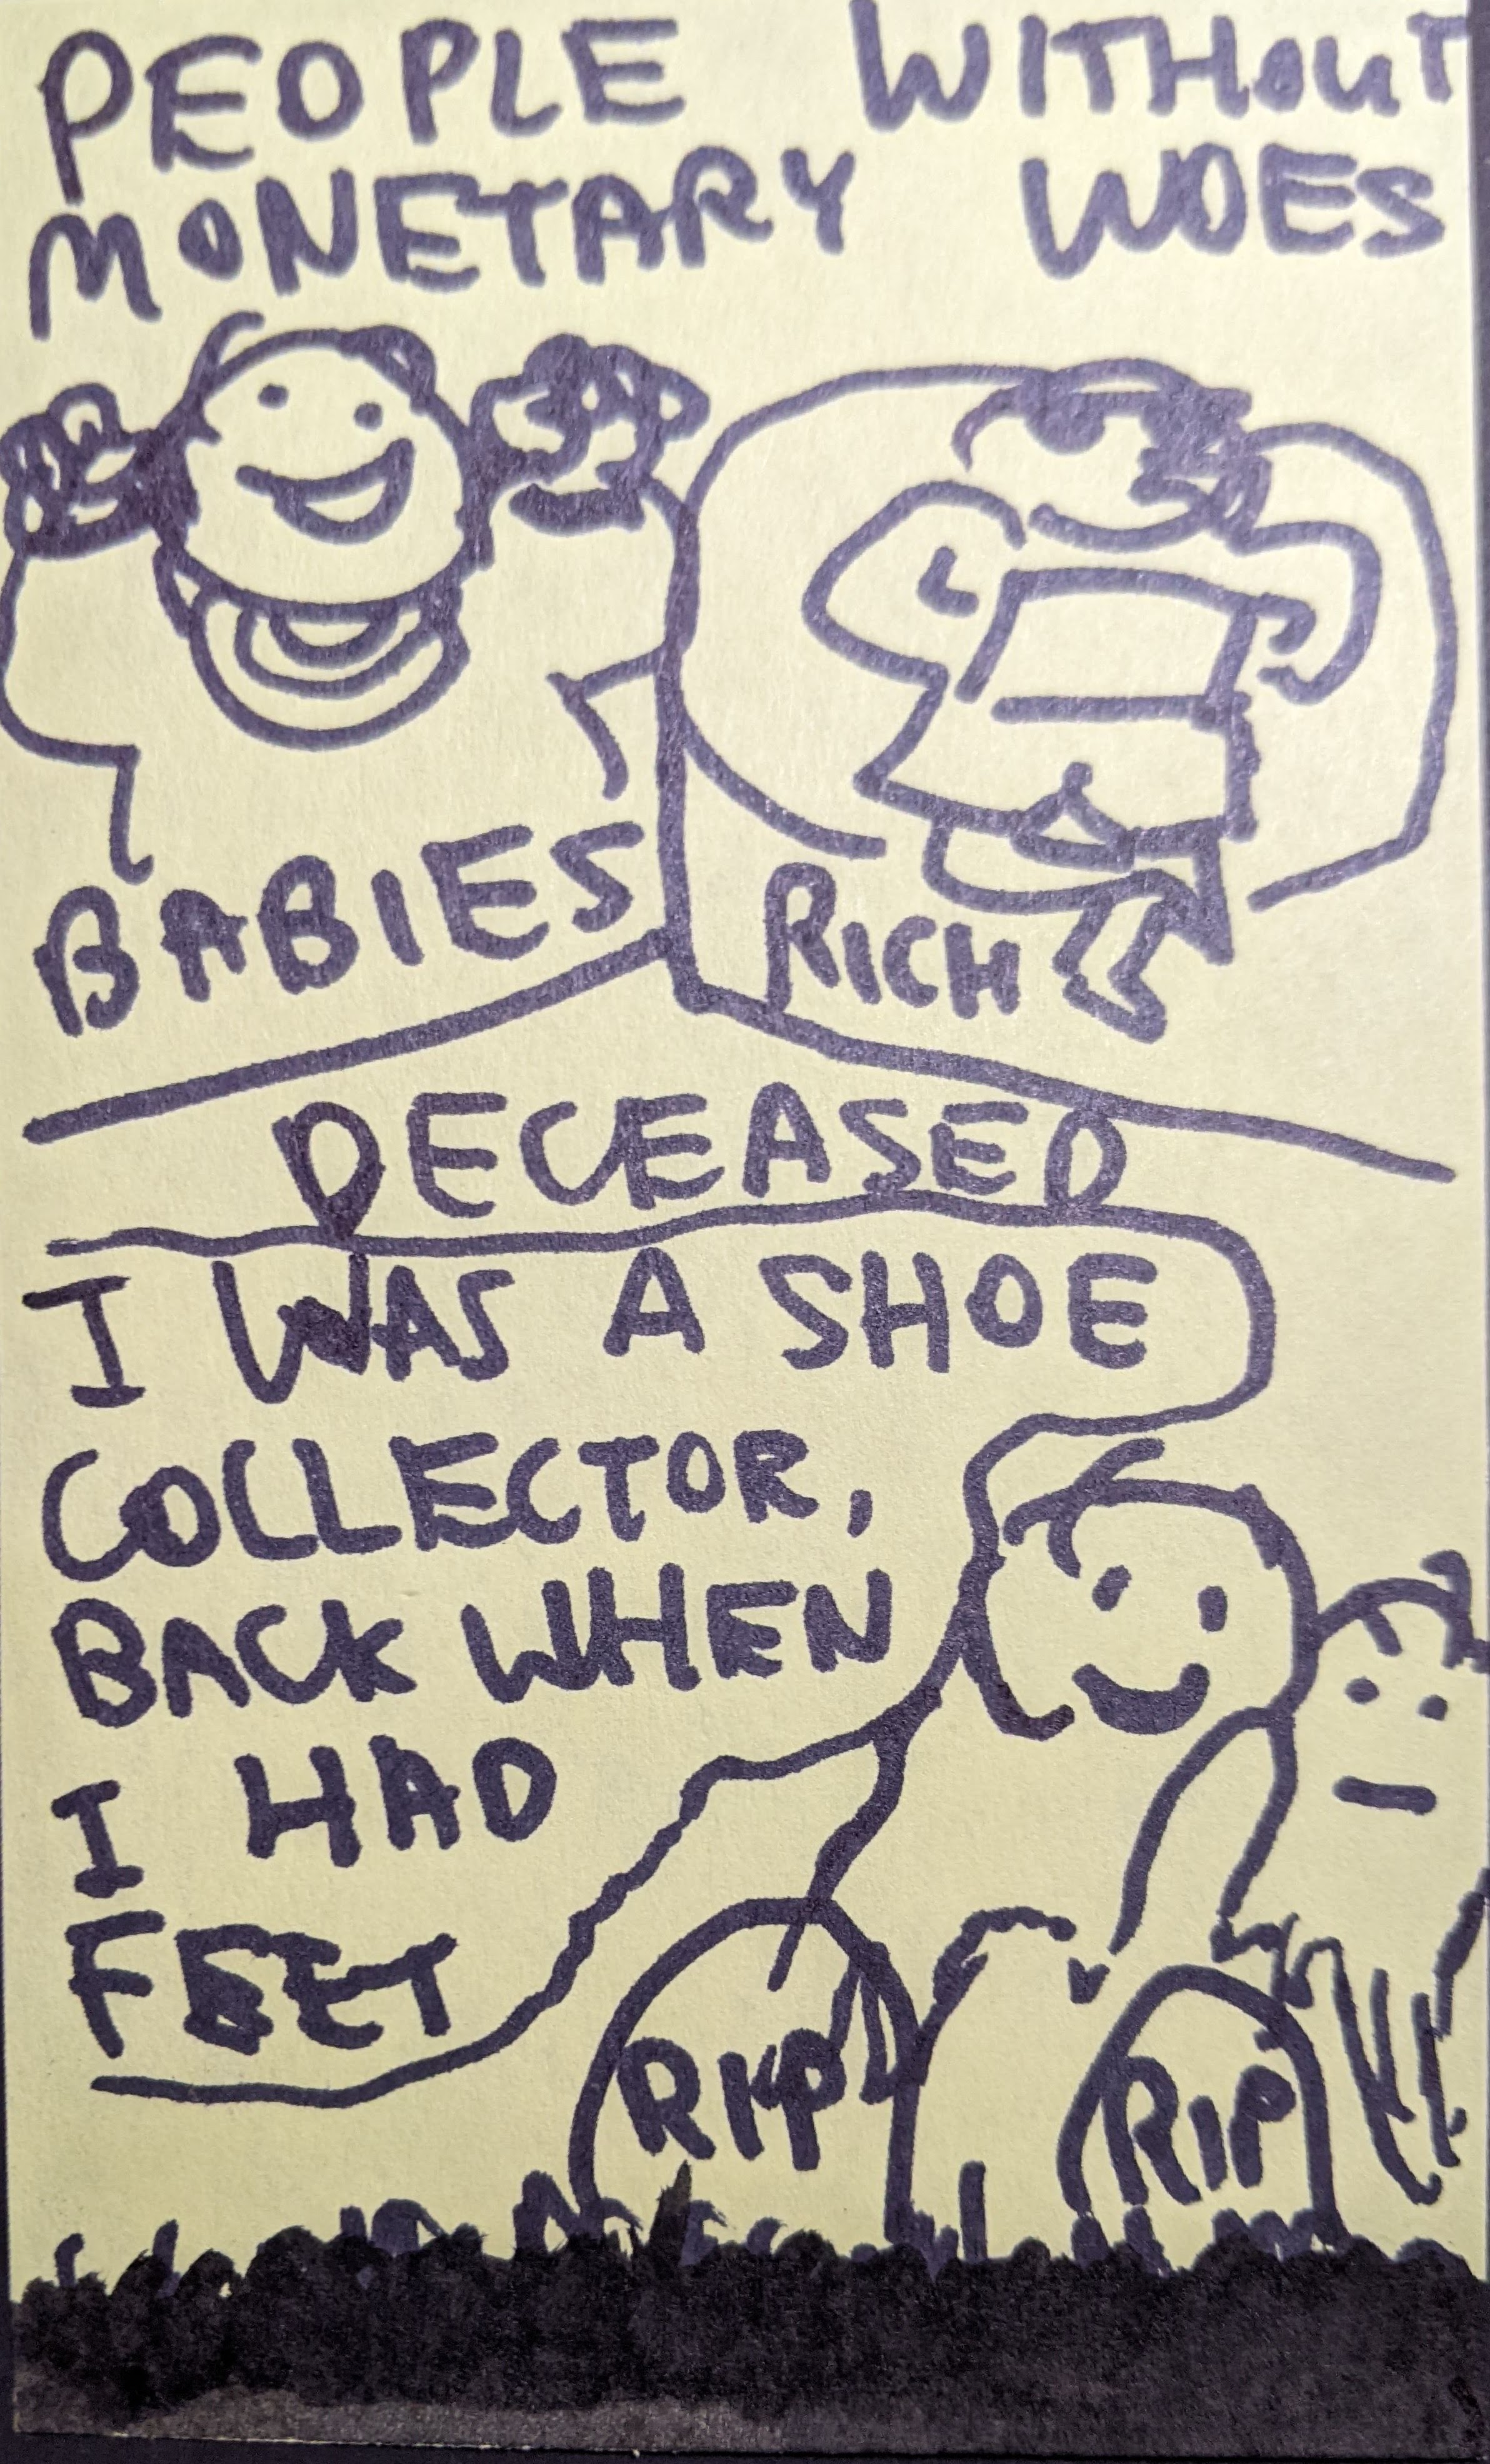 PEOPLE WITHOUT
MONETARY WOES
BABIES
RICH
DECEASED
I WAS A SHOE
COLLECTOR,
BACK WHEN
I HAD
FEET
RIP
RIP